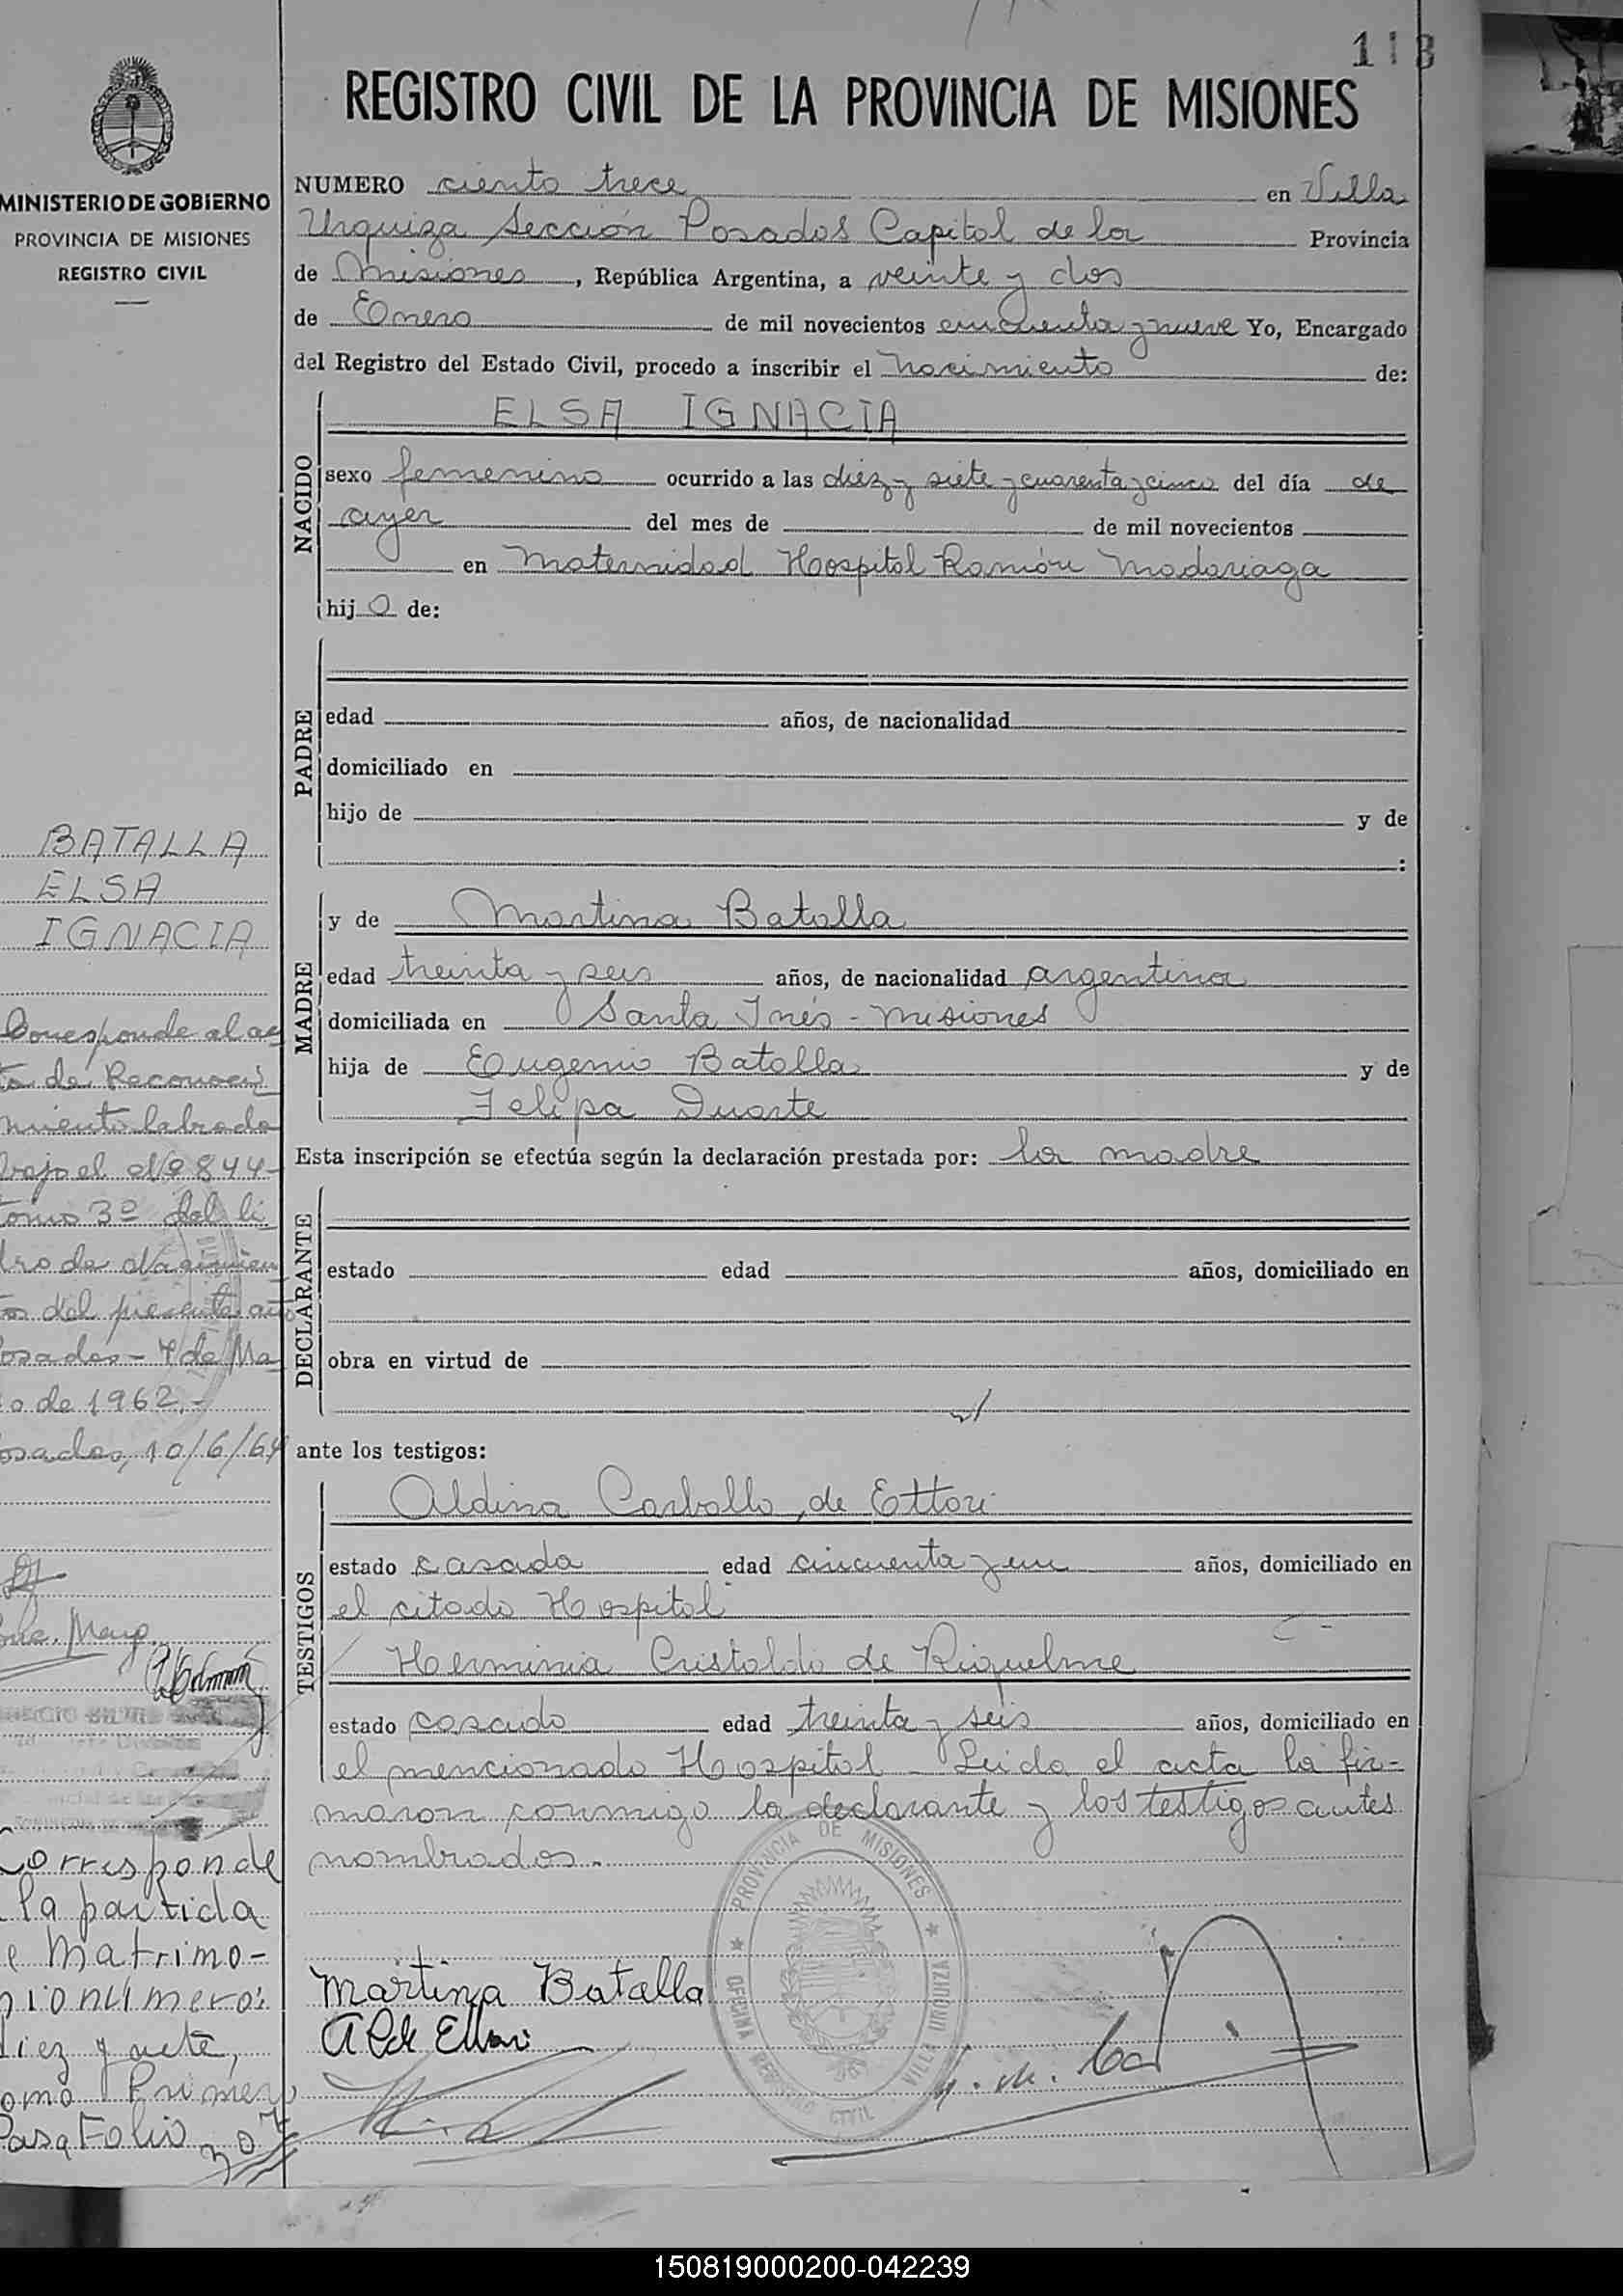 113
REGISTRO CIVIL DE LA PROVINCIA DE MISIONES
MINISTERIO DE GOBIERNO
PROVINCIA DE MISIONES
REGISTRO CIVIL
NUMERO ciento trece en Villa
Urquiza Sección Posadas Capital de la Provincia
de Misiones, República Argentina, a veinte y dos
de Enero de mil novecientos cincuenta y nueve Yo, Encargado
del Registro del Estado Civil, procedo a inscribir el nacimiento de:
NACIDO
ELSA IGNACIA
sexo femenino ocurrido a las diez y siete y cuarenta y cinco del día de
ayer del mes de de mil novecientos
en Maternidad Hospital Ramón Madariaga
hija de:
PADRE
edad años, de nacionalidad
domiciliado en
hijo de y de
:
BATALLA
ELSA
IGNACIA
MADRE
y de Martina Batalla
edad treinta y seis años, de nacionalidad argentina
domiciliada en Santa Inés - Misiones
hija de Eugenio Batalla y de
Felipa Duarte
Esta inscripción se efectúa según la declaración prestada por: la madre
DECLARANTE
estado edad años, domiciliado en
obra en virtud de
ante los testigos:
TESTIGOS
Aldina Carballo de Ettori
estado casada edad cincuenta y un años, domiciliado en
el citado Hospital
Herminia Cristaldo de Riquelme
estado casada edad treinta y seis años, domiciliado en
el mencionado Hospital - Leida el acta la fir-
maron conmigo la declarante y los testigos antes
nombrados.
Corresponde al ac
ta de Reconoci
miento labrada
bajo el Nº 844-
tomo 3º del li
bro de Nacimien
tos del presente año
osadas - 7 de Ma
o de 1962.-
osadas, 10/6/64
Corresponde
la partida
e Matrimo-
nio número:
diez y siete,
omo Primero
Pasa Folio 307
Martina Batalla
A C de Ettori
PROVINCIA DE MISIONES
OFICINA REGISTRO CIVIL VILLA URQUIZA
150819000200-042239